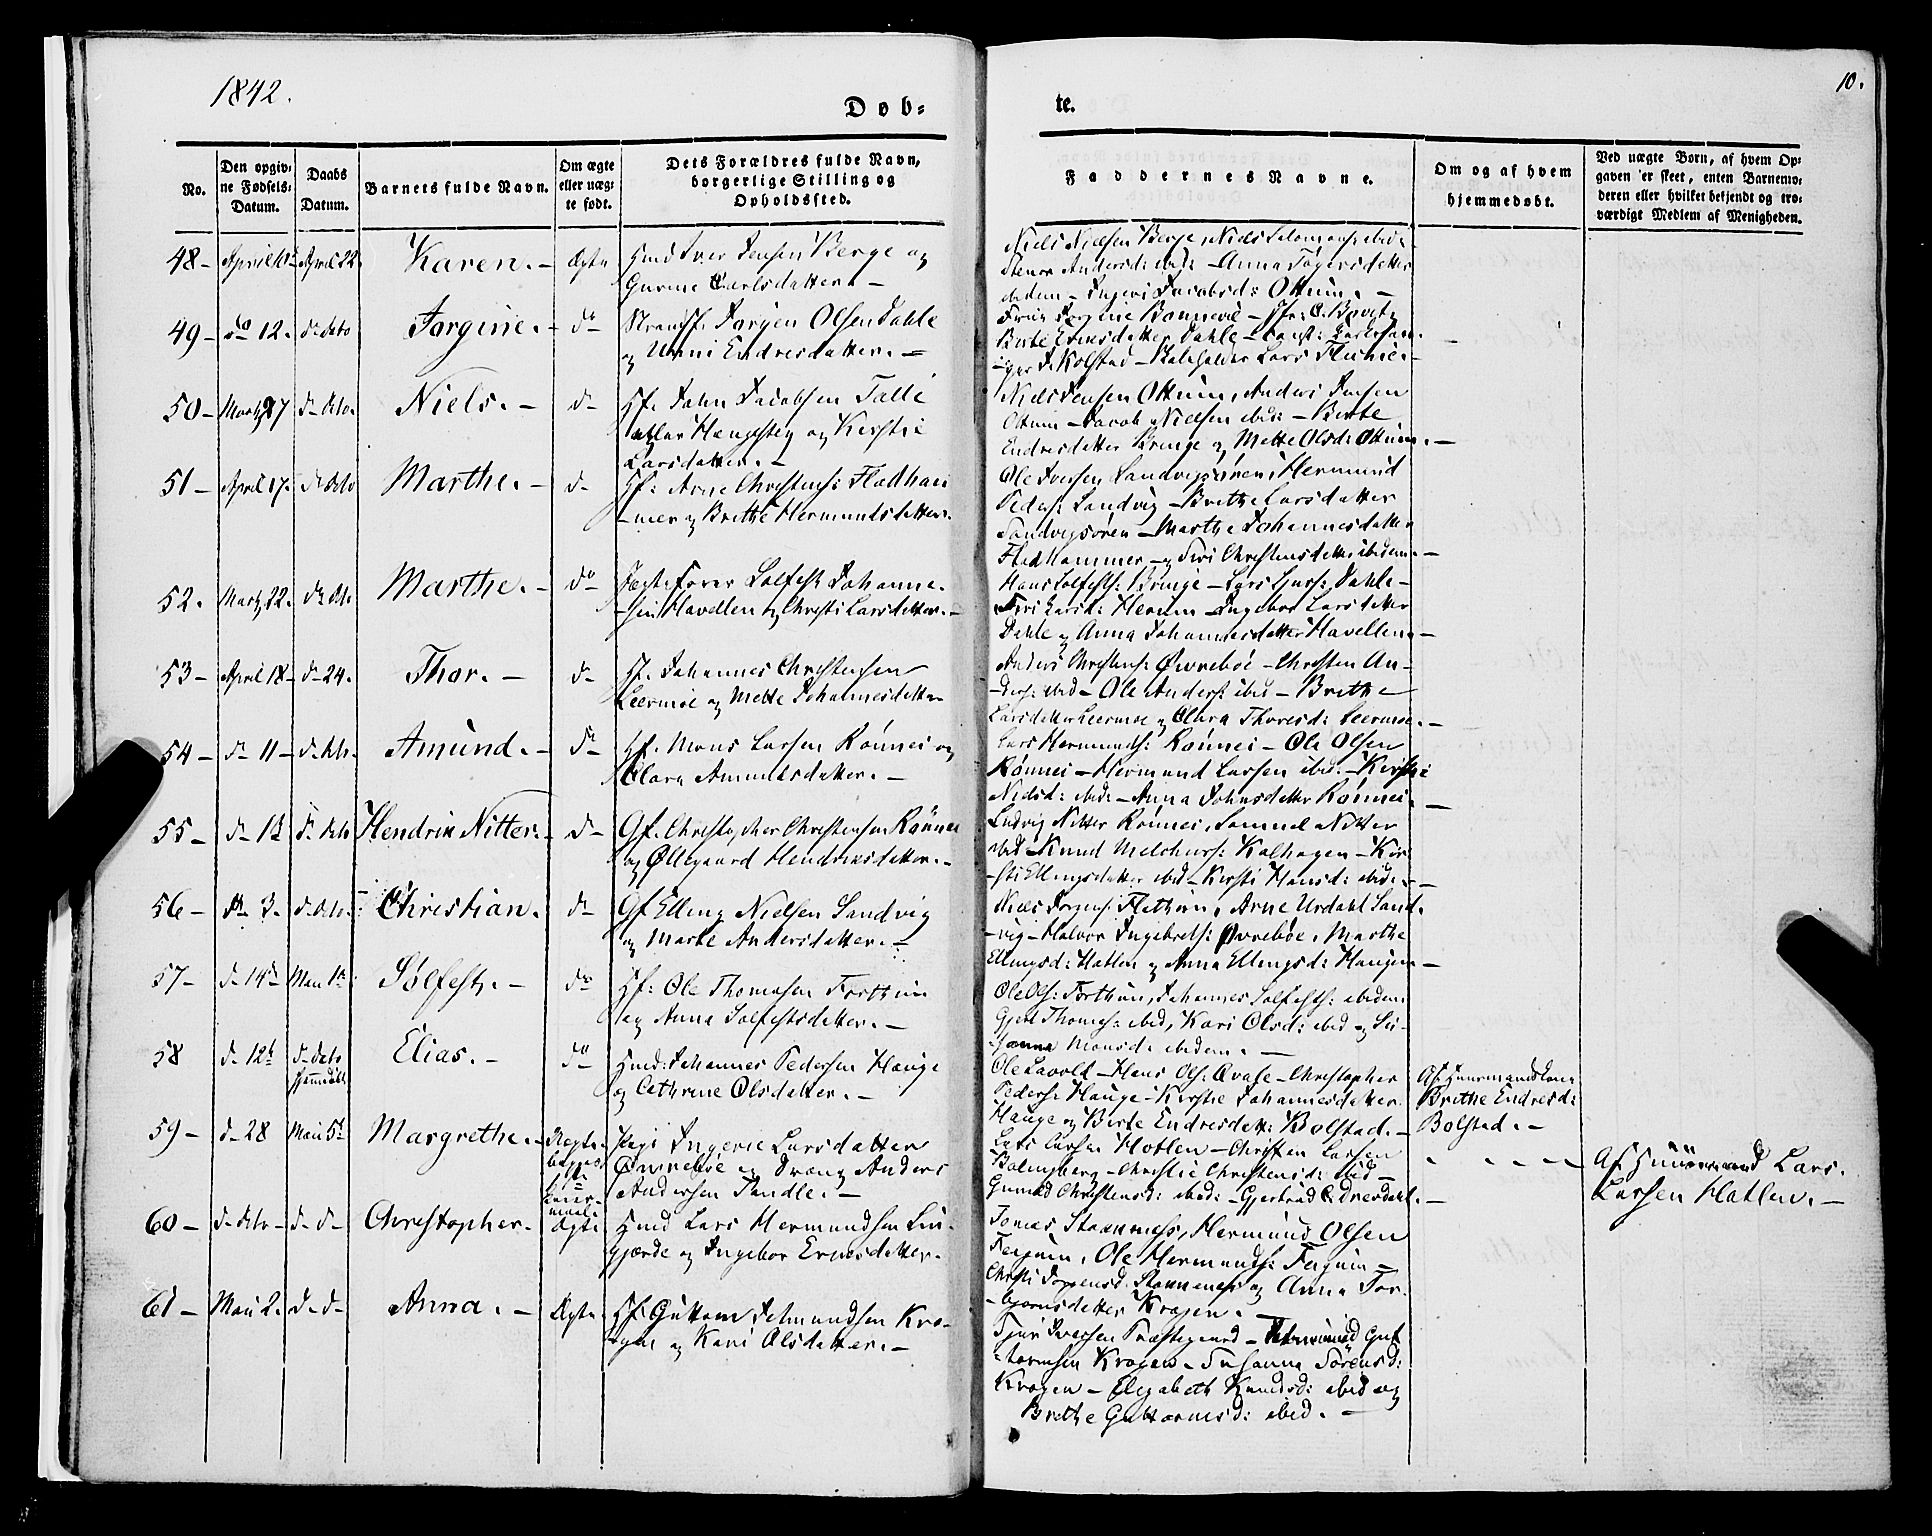 1842.
10.
Døb=
te.
No.
Den opgiv=
ne Fødsels=
Datum.
Daabs
Datum.
Barnets fulde Navn.
Om ægte
eller uæg=
te født.
Dets Forældres fulde Navn,
borgerlige Stilling og
Opholdssted.
Faddernes Navne.
Om og af hvem
hjemmedøbt.
Ved uægte Børn, af hvem Op=
gaven er skeet, enten Barnemo=
deren eller hvilket bekjendt og tro=
værdigt Medlem af Menigheden.
48 - April April 22. Karen. - Ægte Hmd Iver Jensen Berge og
Gurine Carlsdatter. -
Niels Nielsen Berge, Niels Salomons: ibid:
Anders: ibid: - Anna
ibidem - Ingeri Jacobsd: Ottum. -
49 - do 12. do dito Jørgine. - do Jørgen Olsen Dahle
og Unni Endresdatter. -
Jørgine Bonnevie
Birte Endresdatter Dahle
Kolstad - Lars Flume. -
50 - Marts 27 d- dito. Niels. - d- Hf. John Jacobsen Talle
eller Haugsteg og Kersti
Larsdatter. -
Niels Jensen Ottum, Anders Jensen
Ottum - Jacob Nielsen ibid: - Birte
Endresdatter Bringe og Mette Olsd: Ottum. -
51 - April 17. d- dito Marthe. - d- Hf: Arne Christens: Fladham
-mer og Brithe Hermundsdatter.
Ole Iversen Sandvigsøren, Hermund
Peders: Sandvig - Brithe Larsdatter
Sandvigsøren - Marthe Johannesdatter
Fladhammer - og Siri Christensdatter ibidem. -
52. Marts 22. do dito. Marthe. - do Solfest Johanne-
-sen Havellen og Christi Larsdatter. -
Hans Solfests: Bringe - Lars Dahle -
Siri Larsd: Heum - Ingebor Larsdatter
Dahle og Anna Johannesdatter Havellen. -
53 - April 18 - d- 24. Thor. - d- Hf. Johannes Christensen
Leermoe og Mette Johannesdatter
Anders Christens: Øvrebøe - Christen An-
-ders: ibid - Ole Anders: ibid - Brithe
Larsdatter Leermoe og Clara Thoresd: Leermoe. -
54 - d- 11 - d- dito. Amund. - do Hf. Mons Larsen Rönnei og
Clara Amundsdatter. -
Lars Hermunds: Rönnei - Ole Olsen
Rönnei - Hermund Larsen ibid. - Kirsti
Nielsd: ibid: - Anna Johnsdatter Rönnei. -
55 - d- d- dito Hendrik Nitter. - d- Gf. Christopher Christensen Rönnei
og Øllegaard Hendriksdatter. -
Ludvig Nitter Rönnei, Samuel Nitter
ibid - Knud Melchiors: Kalhagen - Kir-
-sti Ellingsdatter ibid - Kersti Hansd: ibid. -
56 - d- 3. d- dito. Christian. d- Gf Elling Nielsen Sandvig
og Marte Andersdatter. -
Niels Jørgens: Flethun, Arne Urdahl Sand-
-vig - Halvor Ingebrets: Øvrebøe, Marthe
Ellingsd: Hatlen og Anna Ellingsd: Haugen -
57 - d- 14 Mai 1 Sølfest. - do Hf: Ole Thomesen Forthun
og Anna Solfestsdatter. -
Ole Ols: Forthun, Johannes Solfests: ibidem
Thomes: ibid, Kari Olsd: ibid og
Monsd: ibidem. -
58 d- 12 d- dito Elias. - do Hmd: Johannes Pedersen Hauge
og Cathrine Olsdatter. -
Ole Lavold - Hans Ols: - Christopher
Peders: Hauge - Kirstie Johannesdatter
Hauge og Birte Endresdatt: Bolstad. -
Af Huusmandskone
Brithe Endresd:
Bolstad. -
59 - d- 28 Mai 5 Margrethe. - Pige Ingerie Larsdatter
Øvrebøe og Dreng Anders
Andersen Tandle. -
Lars Larsen Hatlen - Christen Larsen
- Christie Christensd: ibid -
Gunild Christensd: ibid: - Gjertrud Endresdatt. -
Af Huusmand Lars
Larsen Hatlen. -
60 - d- dito - d- d- Christopher. Ægte Hmd Lars Hermundsen Lin-
gjærde og Ingebor Ernesdatter.
Tomas Hermund Olsen
Fergum, Ole Hermunds: Fergum -
Christi og Anna Tor-
-bjørnsdatter Kragen. -
61 - Mai 2. d- d- Anna. - Ægte Hf. Guttorm Kro-
-gen og Kari Olsdatter. -
Iversen Præstegaard - Gut-
-tormsen Krogen - Susanna Sörensd:
Krogen - Elisabeth Knudsd: ibid og
Brithe Guttormsd: ibid. -